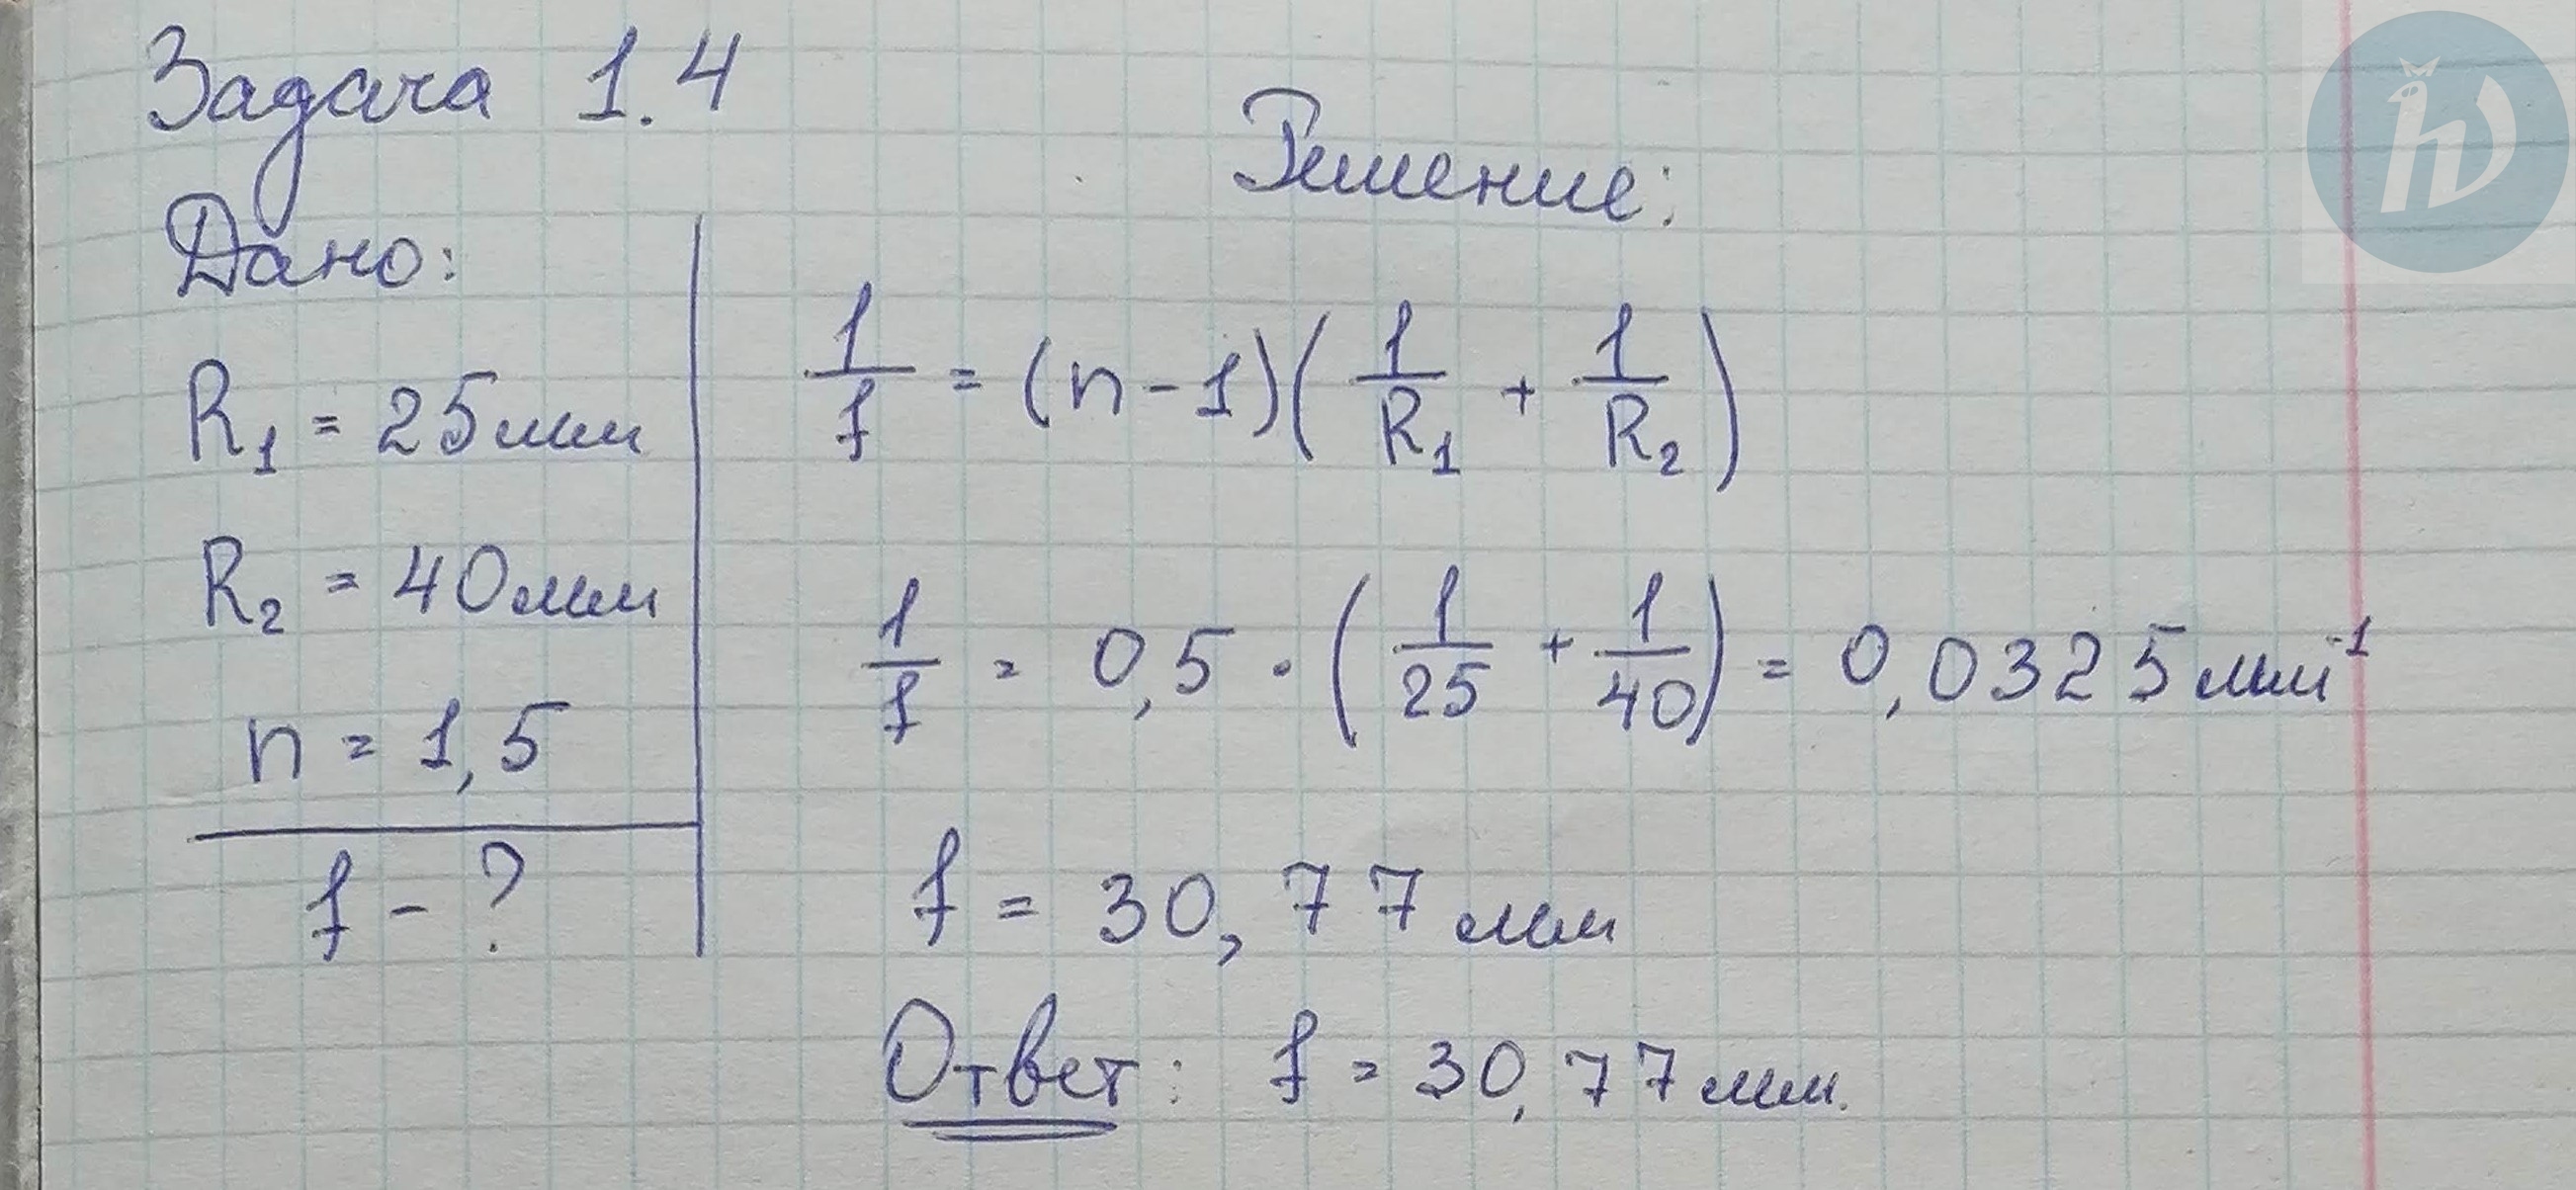 Задача 1.4
Дано:
R₁ = 25мм
R₂ = 40мм
n = 1,5
f - ?
Решение:
1/f = (n - 1)(1/R₁ + 1/R₂)
1/f = 0,5 · (1/25 + 1/40) = 0,0325 мм⁻¹
f = 30,77 мм
Ответ: f = 30,77 мм.